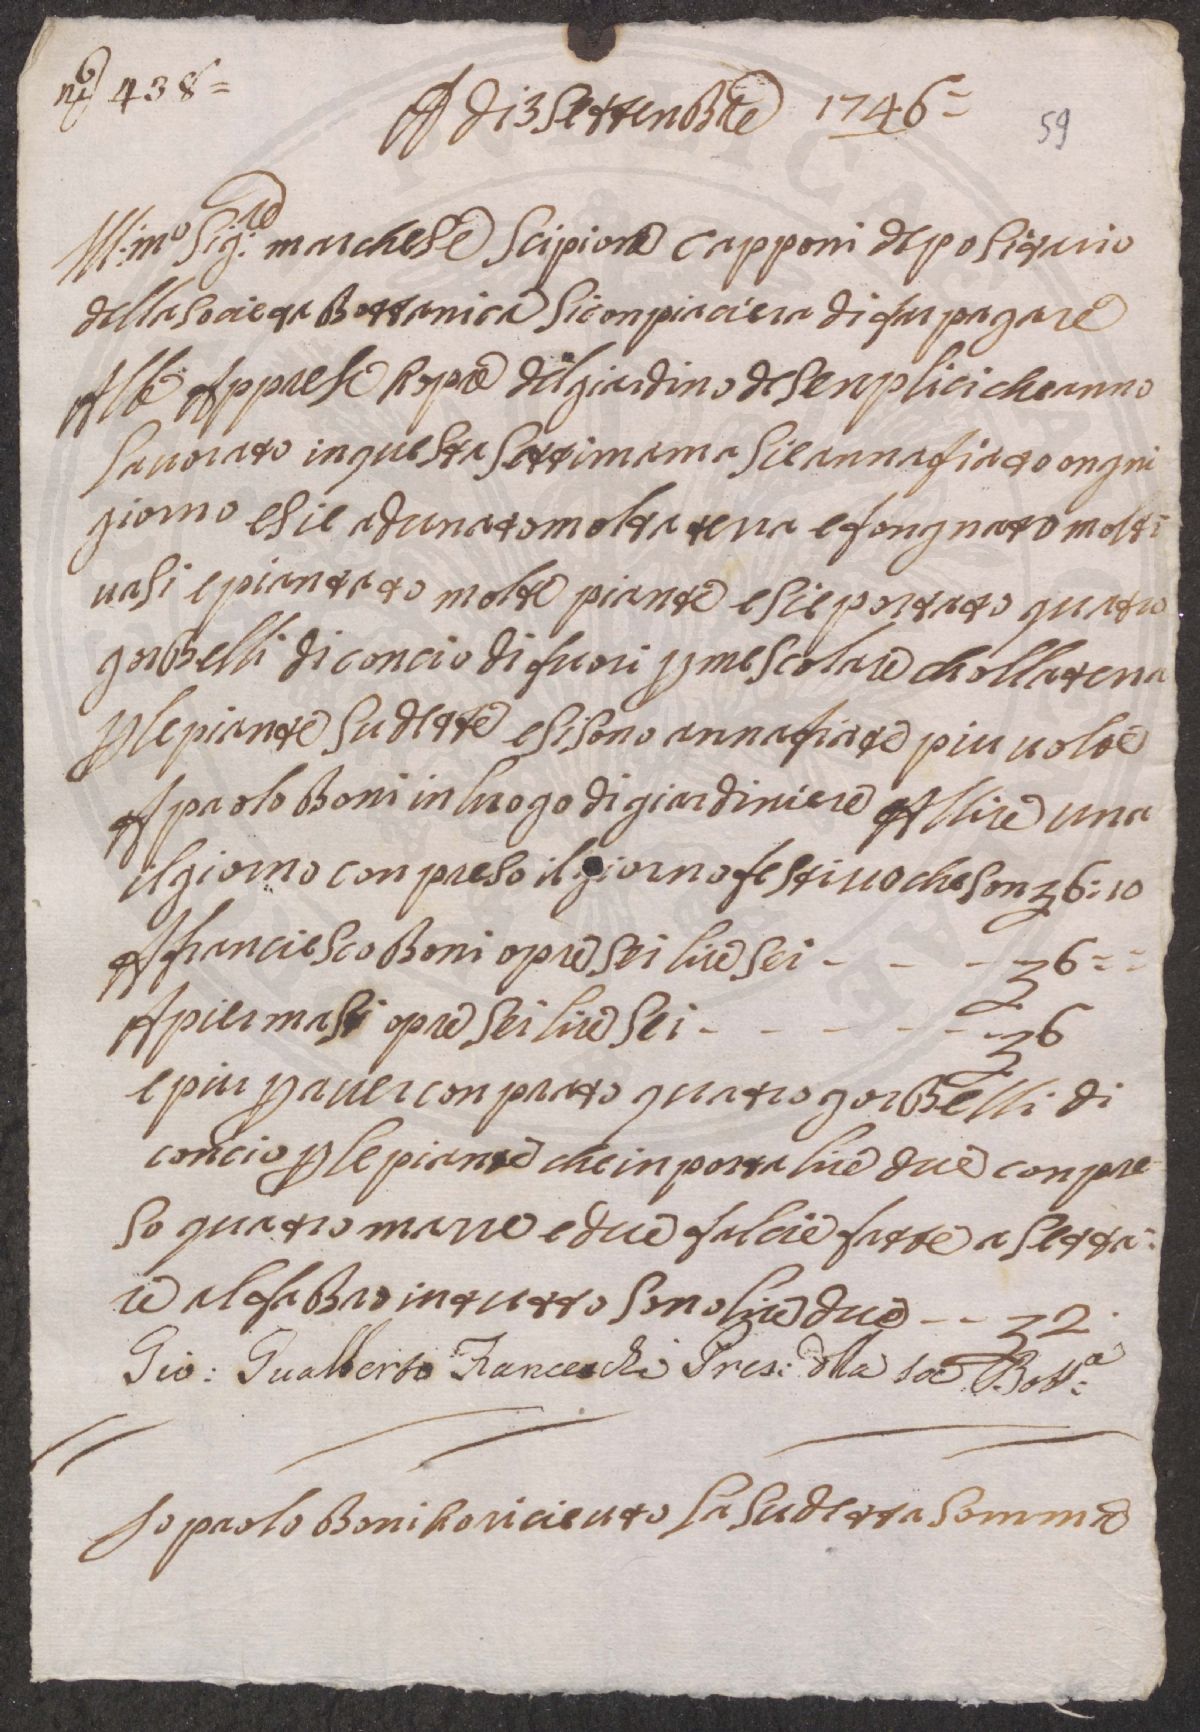 n.o 438=
A di 3 Settenbre 1746=
59
Ill:mo Sig:re marchese Scipione capponi depositario
della societa Bottanica si conpiaciera di far pagare
Alle Apprese hopre del giardino de senplici che anno
lauorato in questa settimama si e annafiato ongni
giorno e si e adunato molta terra e fongnato molti
uasi e piantato molte piante e si e portato quatro
gorbelli di concio di fuori p mescolare cholla terra
p le piante sudette e si sono annafiate piu uolte
A paolo Boni in luogo di giardiniere A lire una
il giorno conpreso il giorno festiuo che son 36:10
A franciesco Boni opre sei lire sei - - - 36==
A pier masi opre sei lire sei - - - - - 36
e piu p auer conprato quatro gorbelli di
concio p le piante che inporta lire due conpre
so quatro marre e due falcie fatte a setta:
re al fabro in tutto sono lire due - - 32
Gio: Gualberto Franceschi Pres: della Soc Bott:a
Io paolo Boni ho riceuto la sudetta somma